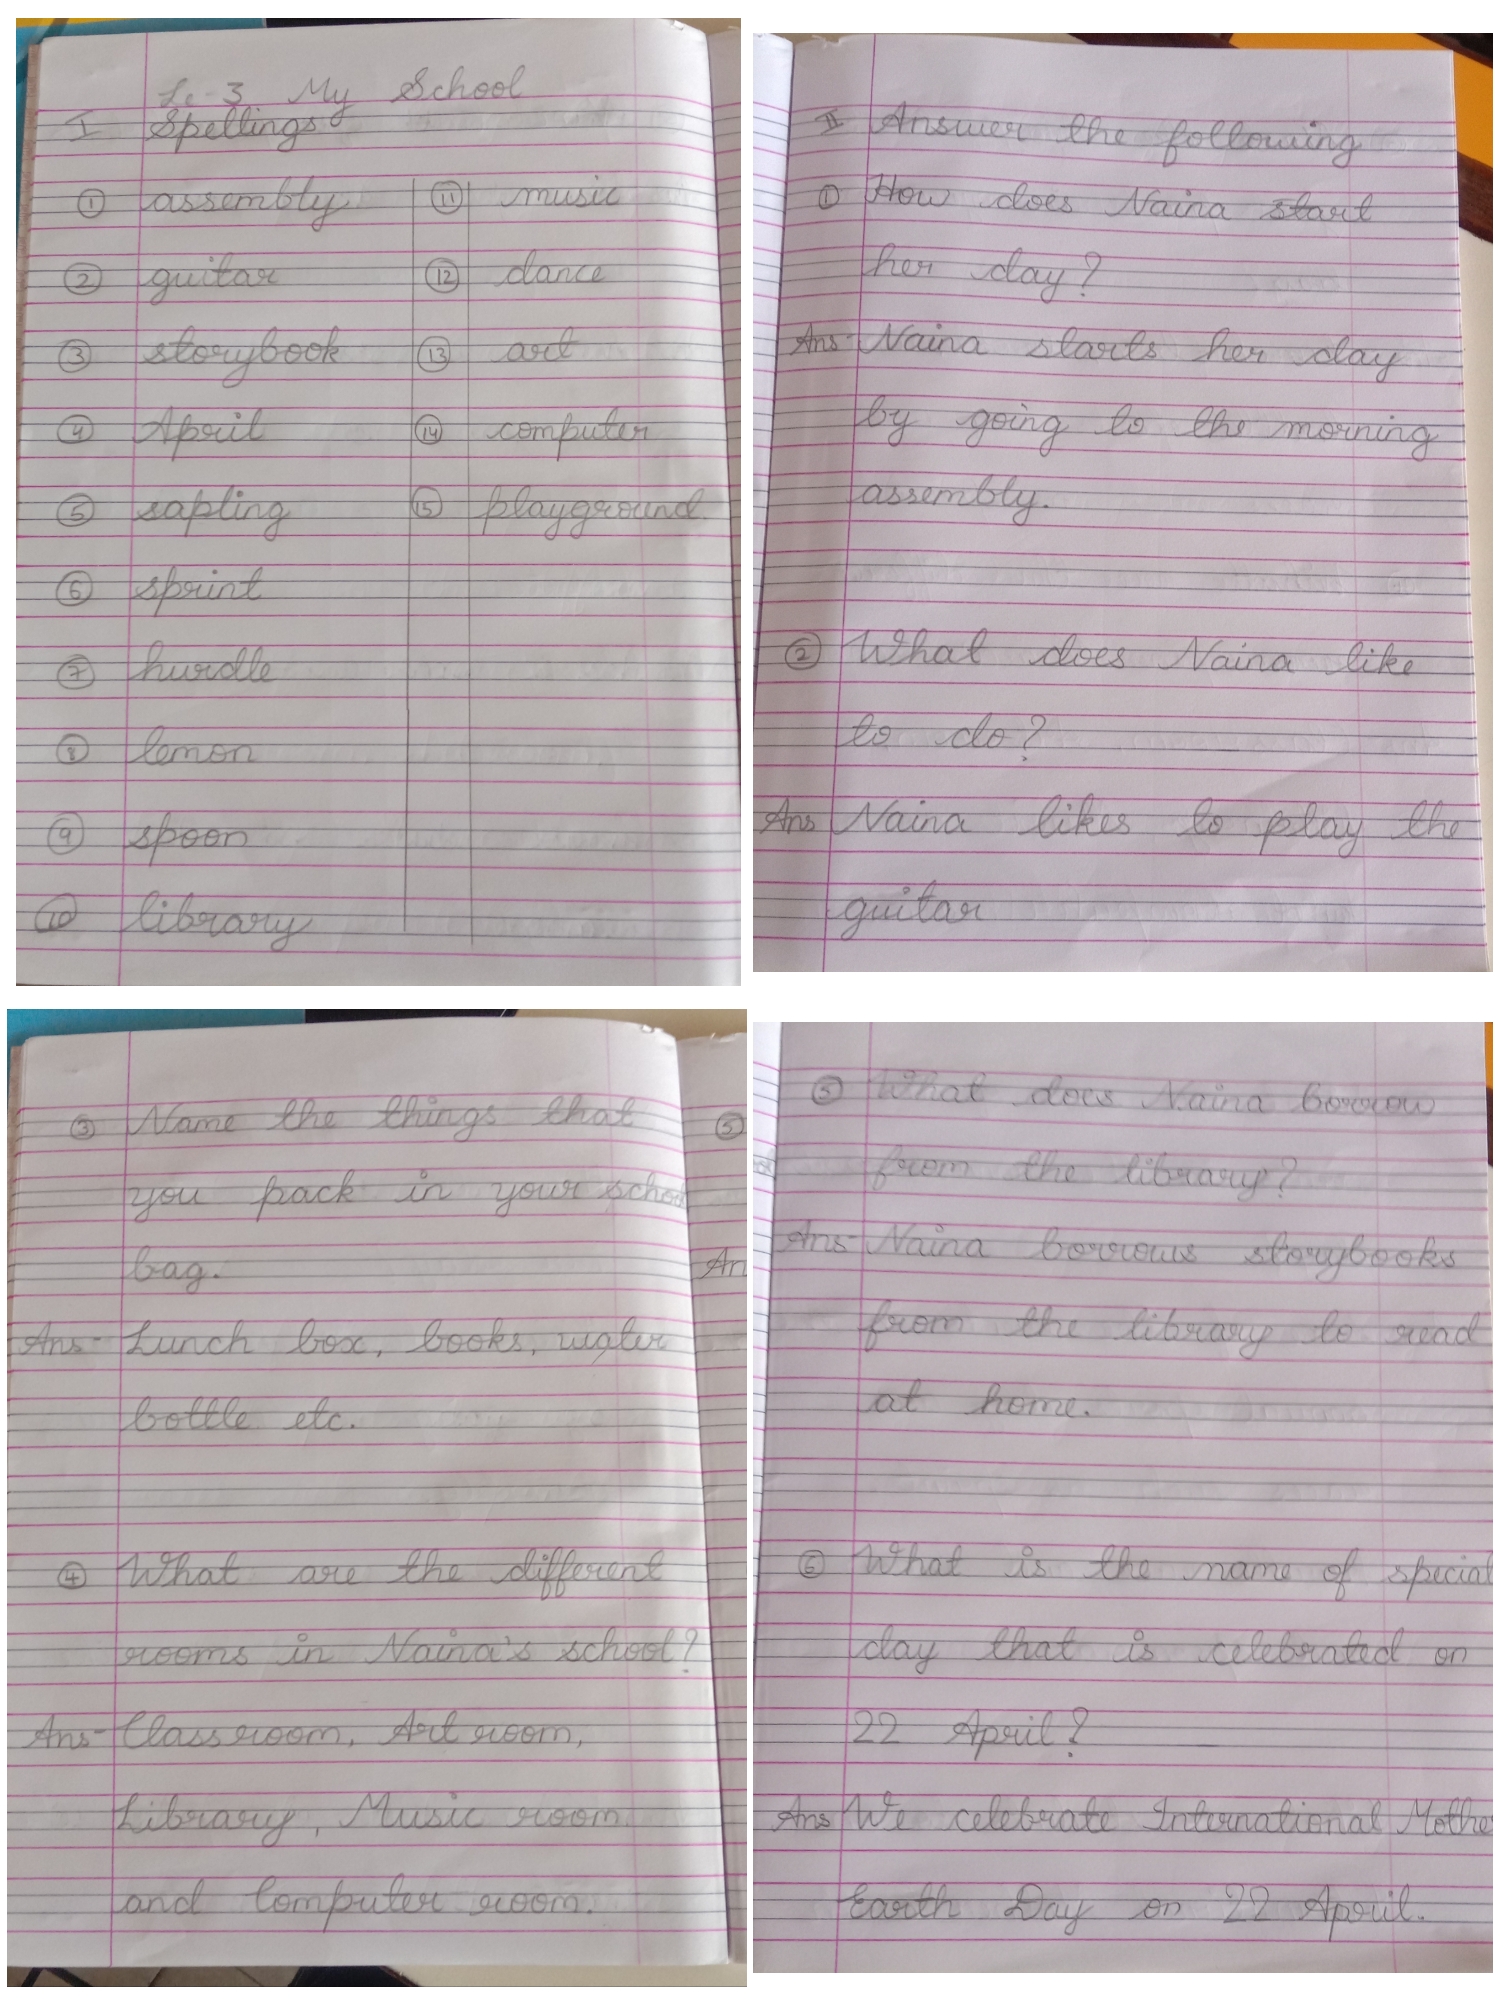 Ls-3 My School
I Spellings
① assembly ⑪ music
② guitar ⑫ dance
③ storybook ⑬ art
④ April ⑭ computer
⑤ sapling ⑮ playground
⑥ sprint
⑦ hurdle
⑧ lemon
⑨ spoon
⑩ library
II Answer the following
① How does Naina start
her day?
Ans- Naina starts her day
by going to the morning
assembly.
② What does Naina like
to do?
Ans Naina likes to play the
guitar
③ Name the things that
you pack in your school
bag.
Ans- Lunch box, books, water
bottle etc.
④ What are the different
rooms in Naina's school?
Ans- Classroom, Art room,
Library, Music room
and Computer room.
⑤
An
⑤ What does Naina borrow
from the library?
Ans- Naina borrows storybooks
from the library to read
at home.
⑥ What is the name of special
day that is celebrated on
22 April?
Ans We celebrate International Mothe
Earth Day on 22 April.